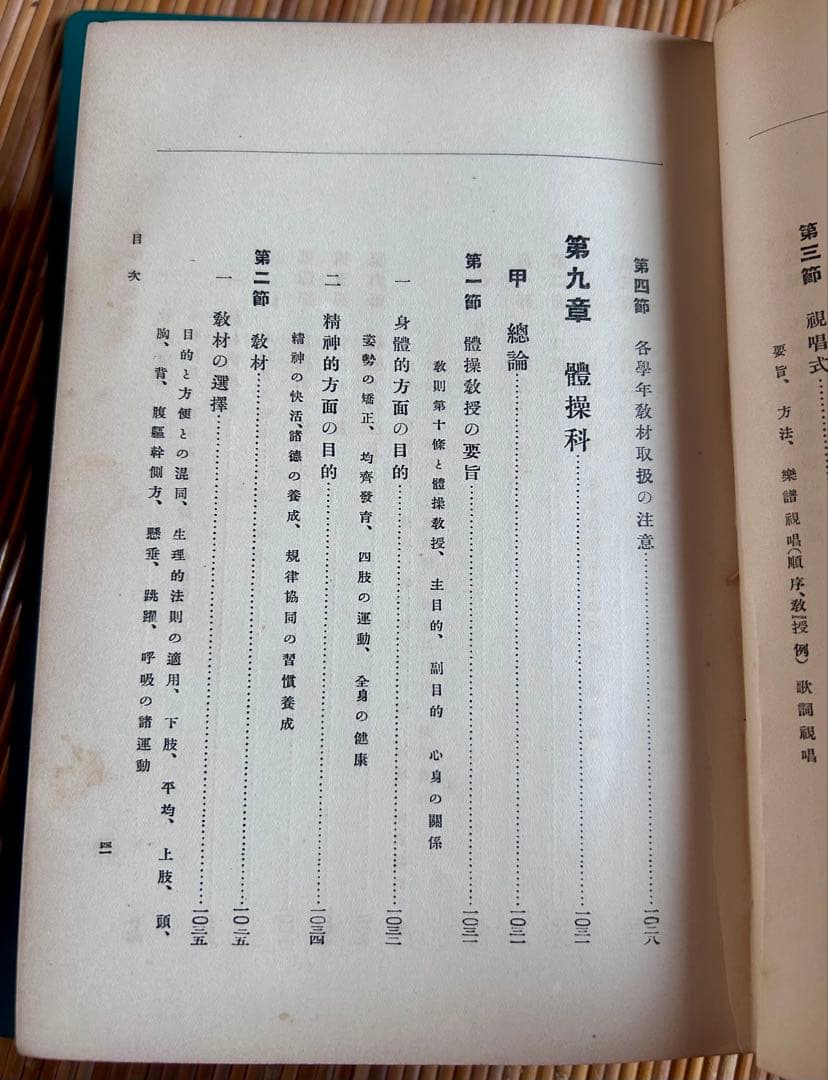 第三節 視唱式……
要旨、方法、樂譜視唱(順序、教授例)歌詞視唱
第四節 各學年教材取扱の注意……一〇二八
第九章 體操科……一〇三一
甲 總論……一〇三一
第一節 體操教授の要旨……一〇三一
教則第十條と體操教授、主目的、副目的 心身の關係
一 身體的方面の目的……一〇三二
姿勢の矯正、均齊發育、四肢の運動、全身の健康
二 精神的方面の目的……一〇三四
精神の快活、諸德の養成、規律協同の習慣養成
第二節 教材……一〇三五
一 教材の選擇……一〇三五
目的と方便との混同、生理的法則の適用、下肢、平均、上肢、頭、
胸、背、腹軀幹側方、懸垂、跳躍、呼吸の諸運動
目次